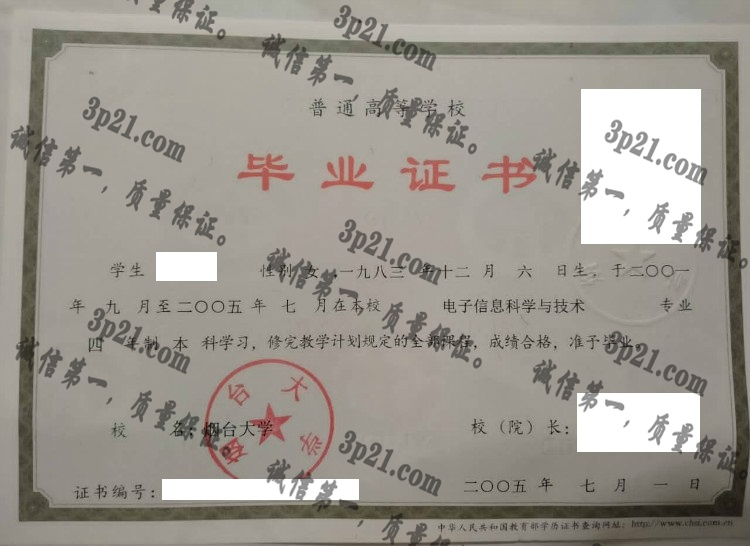 普通高等学校
毕业证书
学生 性别 女，一九八三 年十二 月 六 日生，于二〇〇一
年 九 月至二〇〇五年 七 月在本校 电子信息科学与技术 专业
四 年制 本 科学习，修完教学计划规定的全部课程，成绩合格，准予毕业。
校 名：烟台大学
校（院）长：
烟台大学
证书编号：
二〇〇五 年 七 月 一 日
中华人民共和国教育部学历证书查询网址：http://www.chsi.com.cn
3p21.com
诚信第一，质量保证。
3p21.com
诚信第一，质量保证。
3p21.com
诚信第一，质量保证。
3p21.com
诚信第一，质量保证。
3p21.com
诚信第一，质量保证。
3p21.com
诚信第一，质量保证。
3p21.com
诚信第一，质量保证。
3p21.com
诚信第一，质量保证。